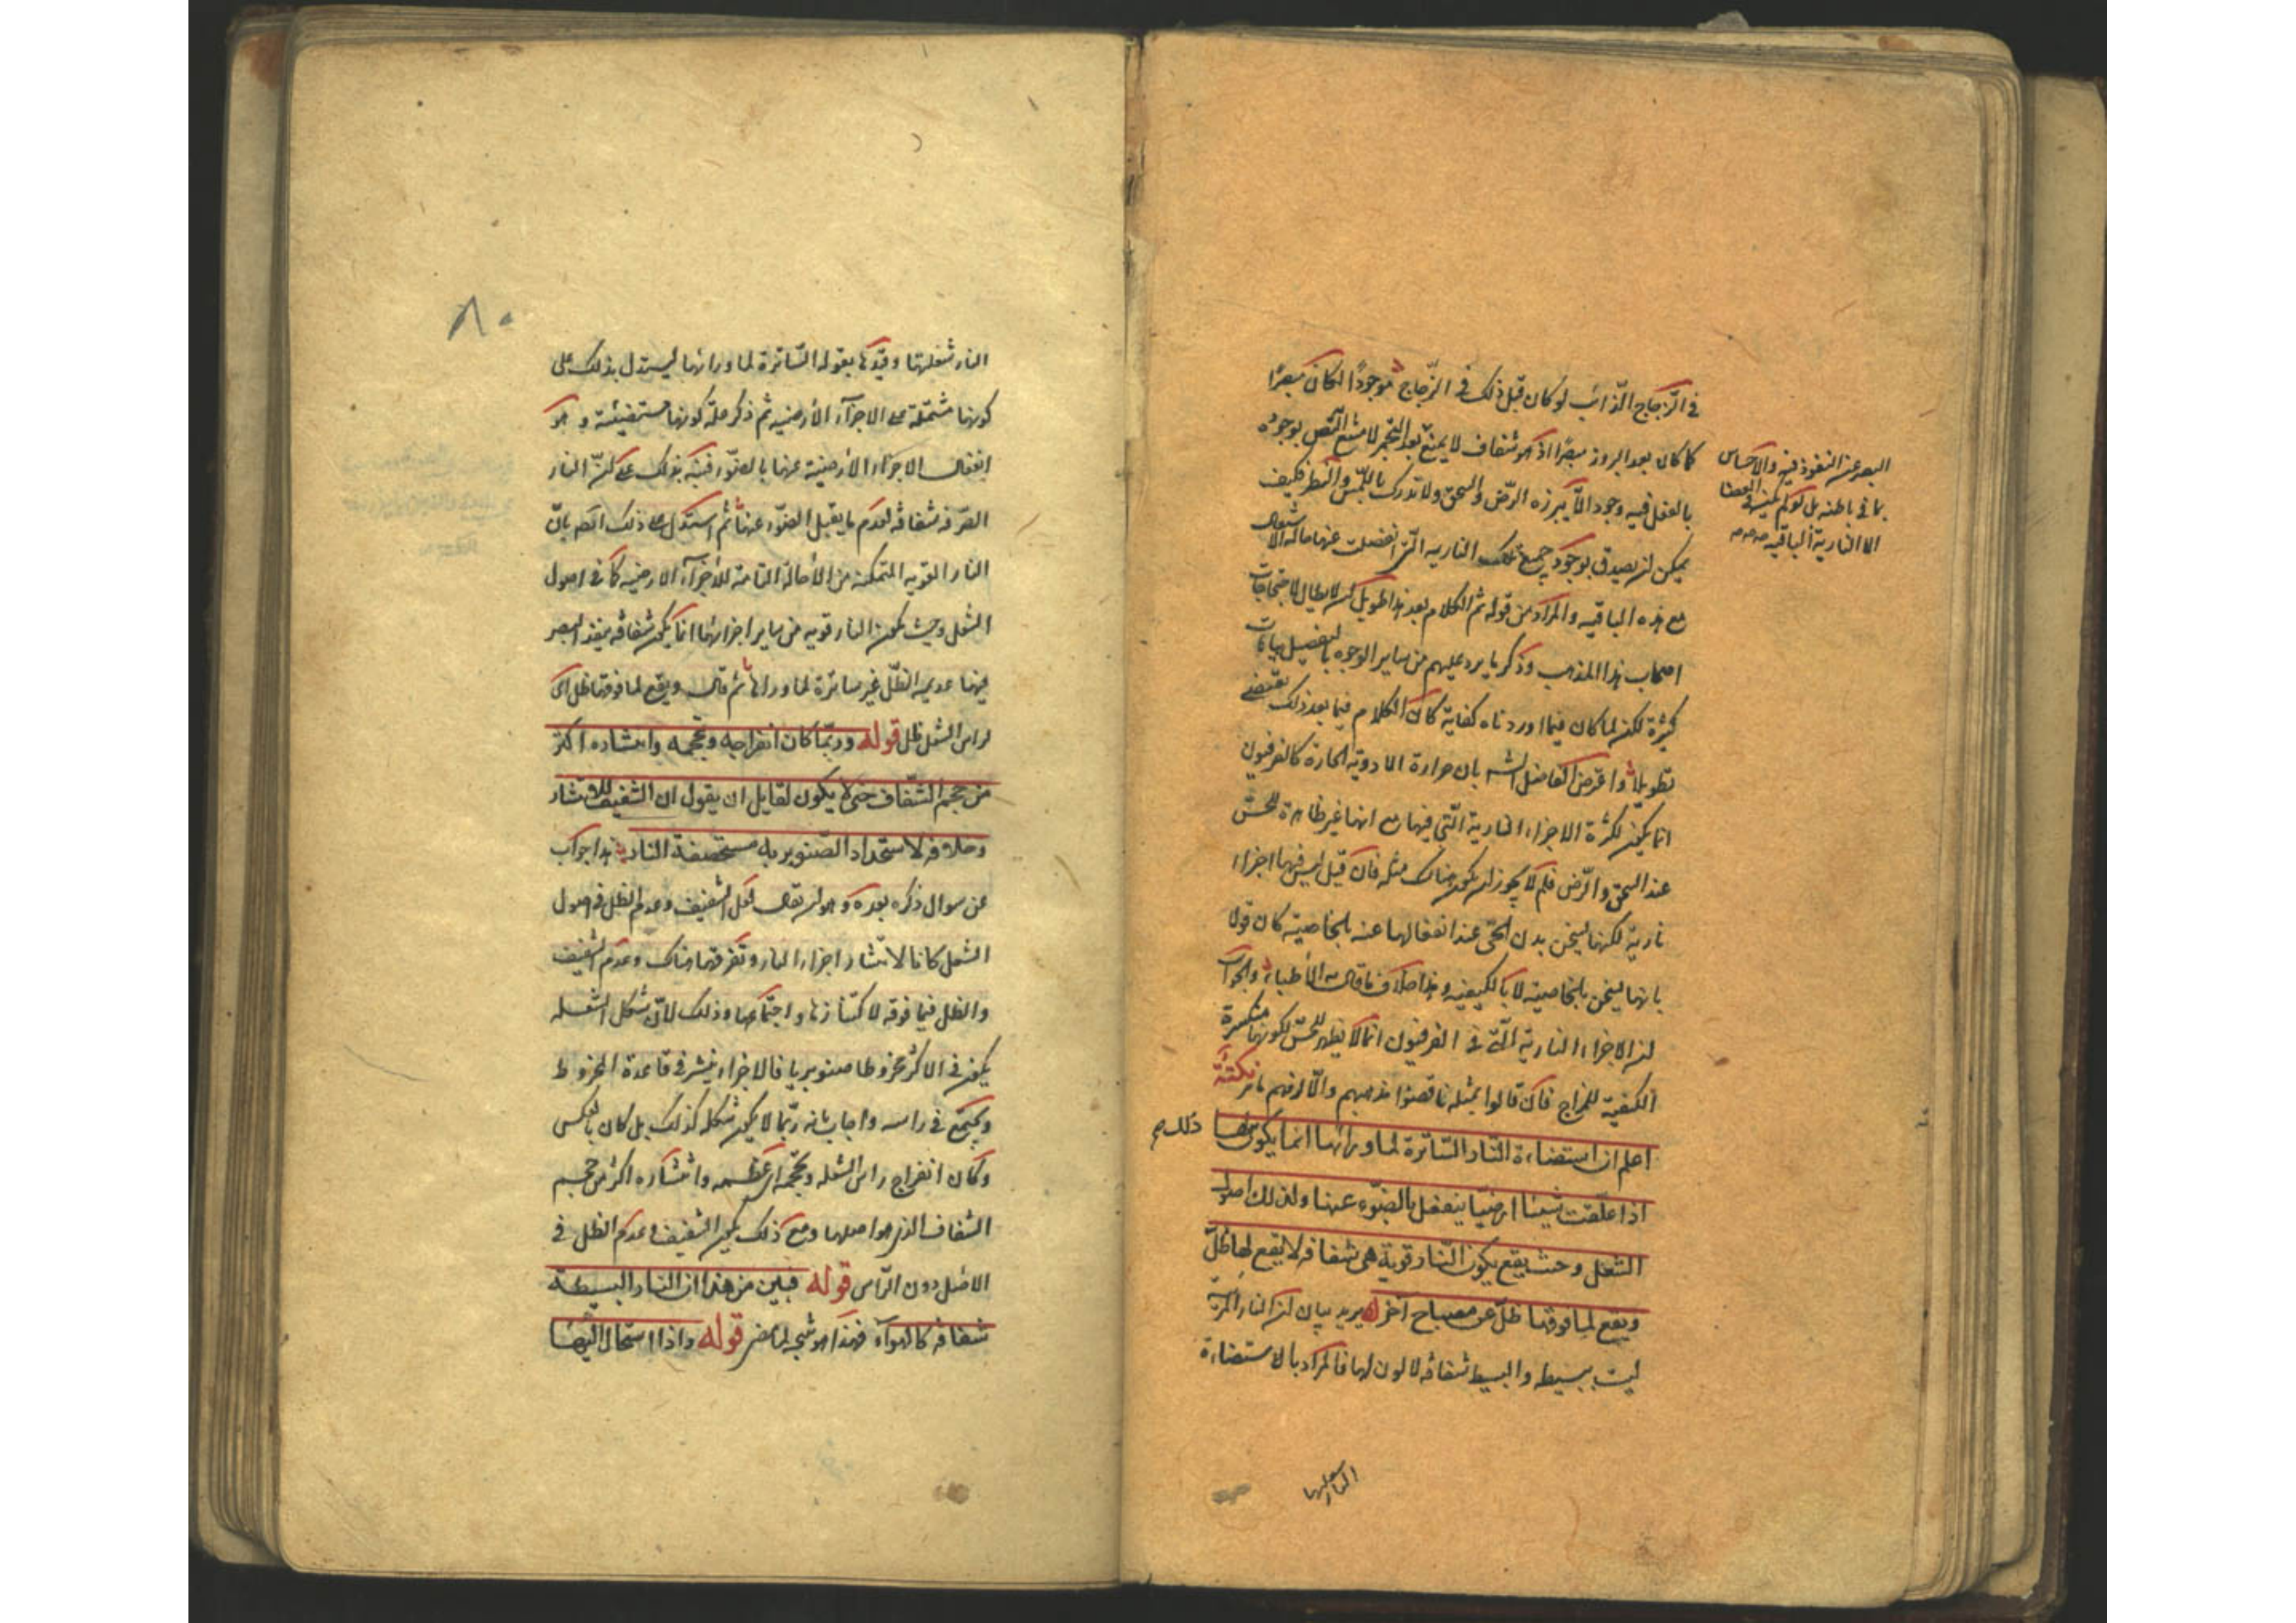 في الزجاج الذائب لو كان قبل ذلك في الزجاج موجودًا لكان مبصرًا
كما كان بعد البروز مبصرًا اذ هو شفاف لا يمنع بعد التحجر لا متنع بوجوده
البصر عن النفوذ فيه والاحساس
بما في باطنه بل لو لم يكن في
الا النارية الباقية
بالفعل فيه وجود الا يبرزه الرض والسحق ولا تدرك باللمس والنظر فكيف
يمكن ان يصدق بوجود جميع تلك النارية التي انفصلت عنها حالة الاشتعال
مع هذه الباقيه والمراد من قوله ثم الكلام بعد هذا طويل ان لابطال احتجاجات
اصحاب هذا المذهب وذكر ما يرد عليهم من ساير الوجوه بالتفصيل بيانات
كثيرة لكن لما كان فيما اوردناه كفاية كان الكلام فيما بعد ذلك يقتضي
تطويلا واعترض الفاضل الشه بان حرارة الادوية الحارة كالفرفيون
انما يكون لكثرة الاجزاء النارية التي فيها مع انها غير ظاهرة للحس
عند السحق والرض فلم لا يجوز ان يكون هناك مثله فان قيل ليس فيها اجزاء
نارية لكنها يسخن بدن الحي عند انفعالها عنه بالخاصية كان قولا
بانها يسخن بالخاصية لا بالكيفية وهذا خلاف ما قاله الأطباء والجواب
ان الاجزاء النارية التي في الفرفيون انما لا يظهر للحس لكونها منكسرة
الكيفية للمزاج فان قالوا بمثله ناقضوا مذهبهم والا لزمهم ما مر نكتة
اعلم ان استضاءة النار الساترة لما ورائها انما يكون لها ذلك
اذا علقت شيئا ارضيا ينفعل بالضوء عنها ولذلك اصول
الشعل وحيث يقع يكون النار قوية هي شفافه لا يقع لها ظل
ويقع لما فوقها ظل عن مصباح اخر يريد بيان ان النار المرئية
ليست ببسيطه والبسيط شفافه لا لون لها فالمراد بالاستضاءة
النار شعلتها
٨٠
النار شعلتها وقيدها بقوله الساترة لما ورائها ليستدل بذلك على
كونها مشتملة على الاجزاء الأرضيه ثم ذكر علة كونها مستضيئة وهو
انفعال الاجزاء الأرضية عنها بالضوء فنبه بذلك على ان النار
الصرفه شفافة لعدم ما يقبل الضوء عنها ثم استدل على ذلك ايضا بان
النار القويه المتمكنه من الأحالة التامة للأجزاء الارضيه كما في اصول
الشعل وحيث يكون النار قويه من ساير اجزائها انما يكون شفافه ينفذ البصر
فيها عديمه الظل غير ساترة لما وراها ثم قال ويقع لما فوقها ظل اي
لراس الشعل ظل قوله وربما كان انفراجه وتحجمه وانتشاره اكثر
من حجم الشفاف حتى لا يكون لقايل ان يقول ان الشفيف للانتشار
وخلافه لاستحداد الصنوبرية مستحصفة النار هذا جواب
عن سوال ذكره بعده وهو ان يقال لعل الشفيف وعدم الظل في اصول
الشعل كانا لانتشار اجزاء النار وتفرقها هناك وعدم الشفيف
والظل فيما فوقه لاكتنازها واجتماعها وذلك لأن شكل الشعله
يكون في الاكثر مخروطا صنوبريا فالاجزاء ينتشر في قاعدة المخروط
ويجتمع في راسه واجاب بانه ربما لا يكون شكله كذلك بل كان بالعكس
وكان انفراج راس الشعله وتحجمه اي عظمه وانتشاره اكثر من حجم
الشفاف الذي هو اصلها ومع ذلك يكون الشفيف وعدم الظل في
الاصل دون الراس قوله فبين من هذا ان النار البسيطة
شفافه كالهواء فهذا هو نتيجة لما مضى قوله واذا استحال اليها